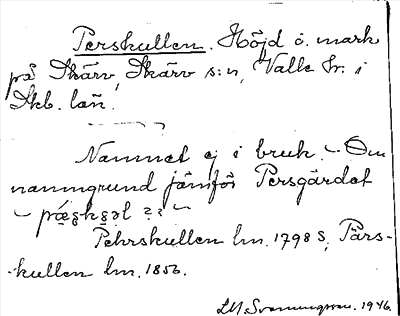 Perskullen. Höjd o. mark
på Skärv, Skärv s:n, Valle hr. i
Skb. län.
Namnet ej i bruk. – Om
namngrund jämför Persgärdet
Pehrskullen lm. 1798 S, Pärs-
kullen lm. 1856.
1946.